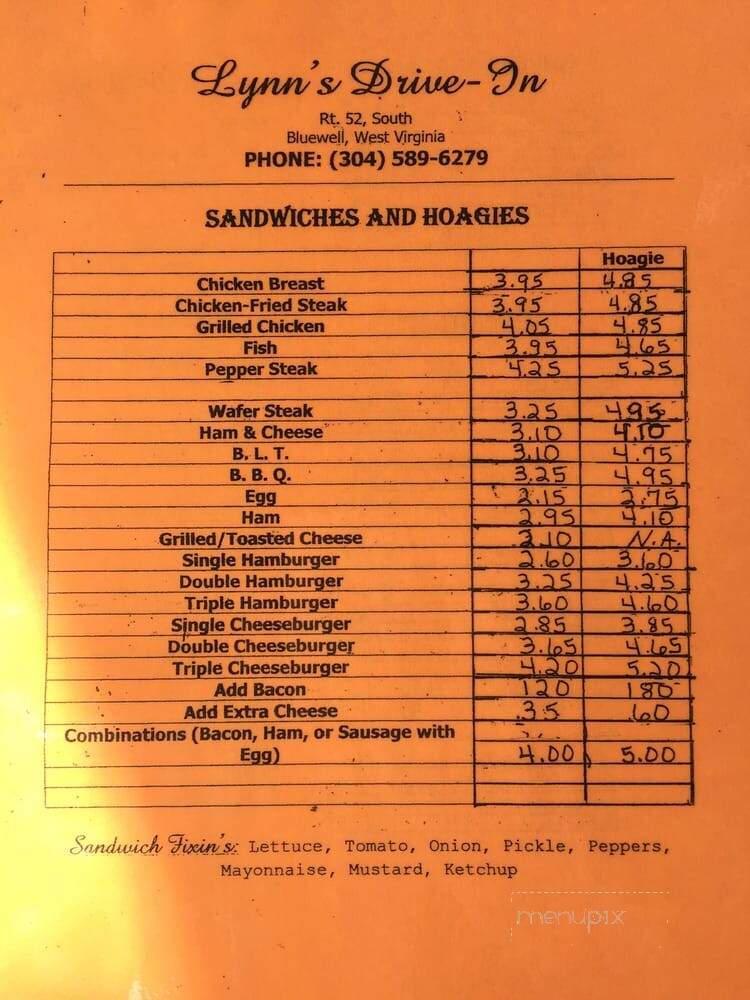 Lynn's Drive-In
Rt. 52, South
Bluewell, West Virginia
PHONE: (304) 589-6279
SANDWICHES AND HOAGIES
Hoagie
Chicken Breast 3.95 4.85
Chicken-Fried Steak 3.95 4.85
Grilled Chicken 4.05 4.85
Fish 3.95 4.65
Pepper Steak 4.25 5.25
Wafer Steak 3.25 4.95
Ham & Cheese 3.10 4.10
B. L. T. 3.10 4.75
B. B. Q. 3.25 4.95
Egg 2.15 2.75
Ham 2.95 4.10
Grilled/Toasted Cheese 2.10 N.A.
Single Hamburger 2.60 3.60
Double Hamburger 3.25 4.25
Triple Hamburger 3.60 4.60
Single Cheeseburger 2.85 3.85
Double Cheeseburger 3.65 4.65
Triple Cheeseburger 4.20 5.20
Add Bacon 120 180
Add Extra Cheese .35 .60
Combinations (Bacon, Ham, or Sausage with
Egg) 4.00 5.00
Sandwich Fixin's: Lettuce, Tomato, Onion, Pickle, Peppers,
Mayonnaise, Mustard, Ketchup
menupix